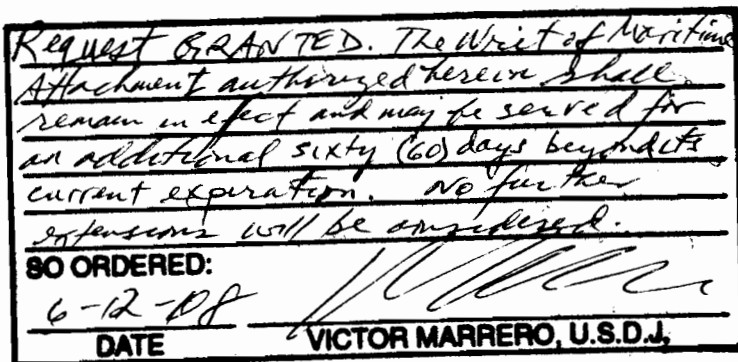 Request GRANTED. The Writ of Maritime
Attachment authorized herein shall
remain in effect and may be served for
an additional sixty (60) days beyond its
current expiration. No further
extensions will be considered.
SO ORDERED:
6-12-08
DATE VICTOR MARRERO, U.S.D.J.